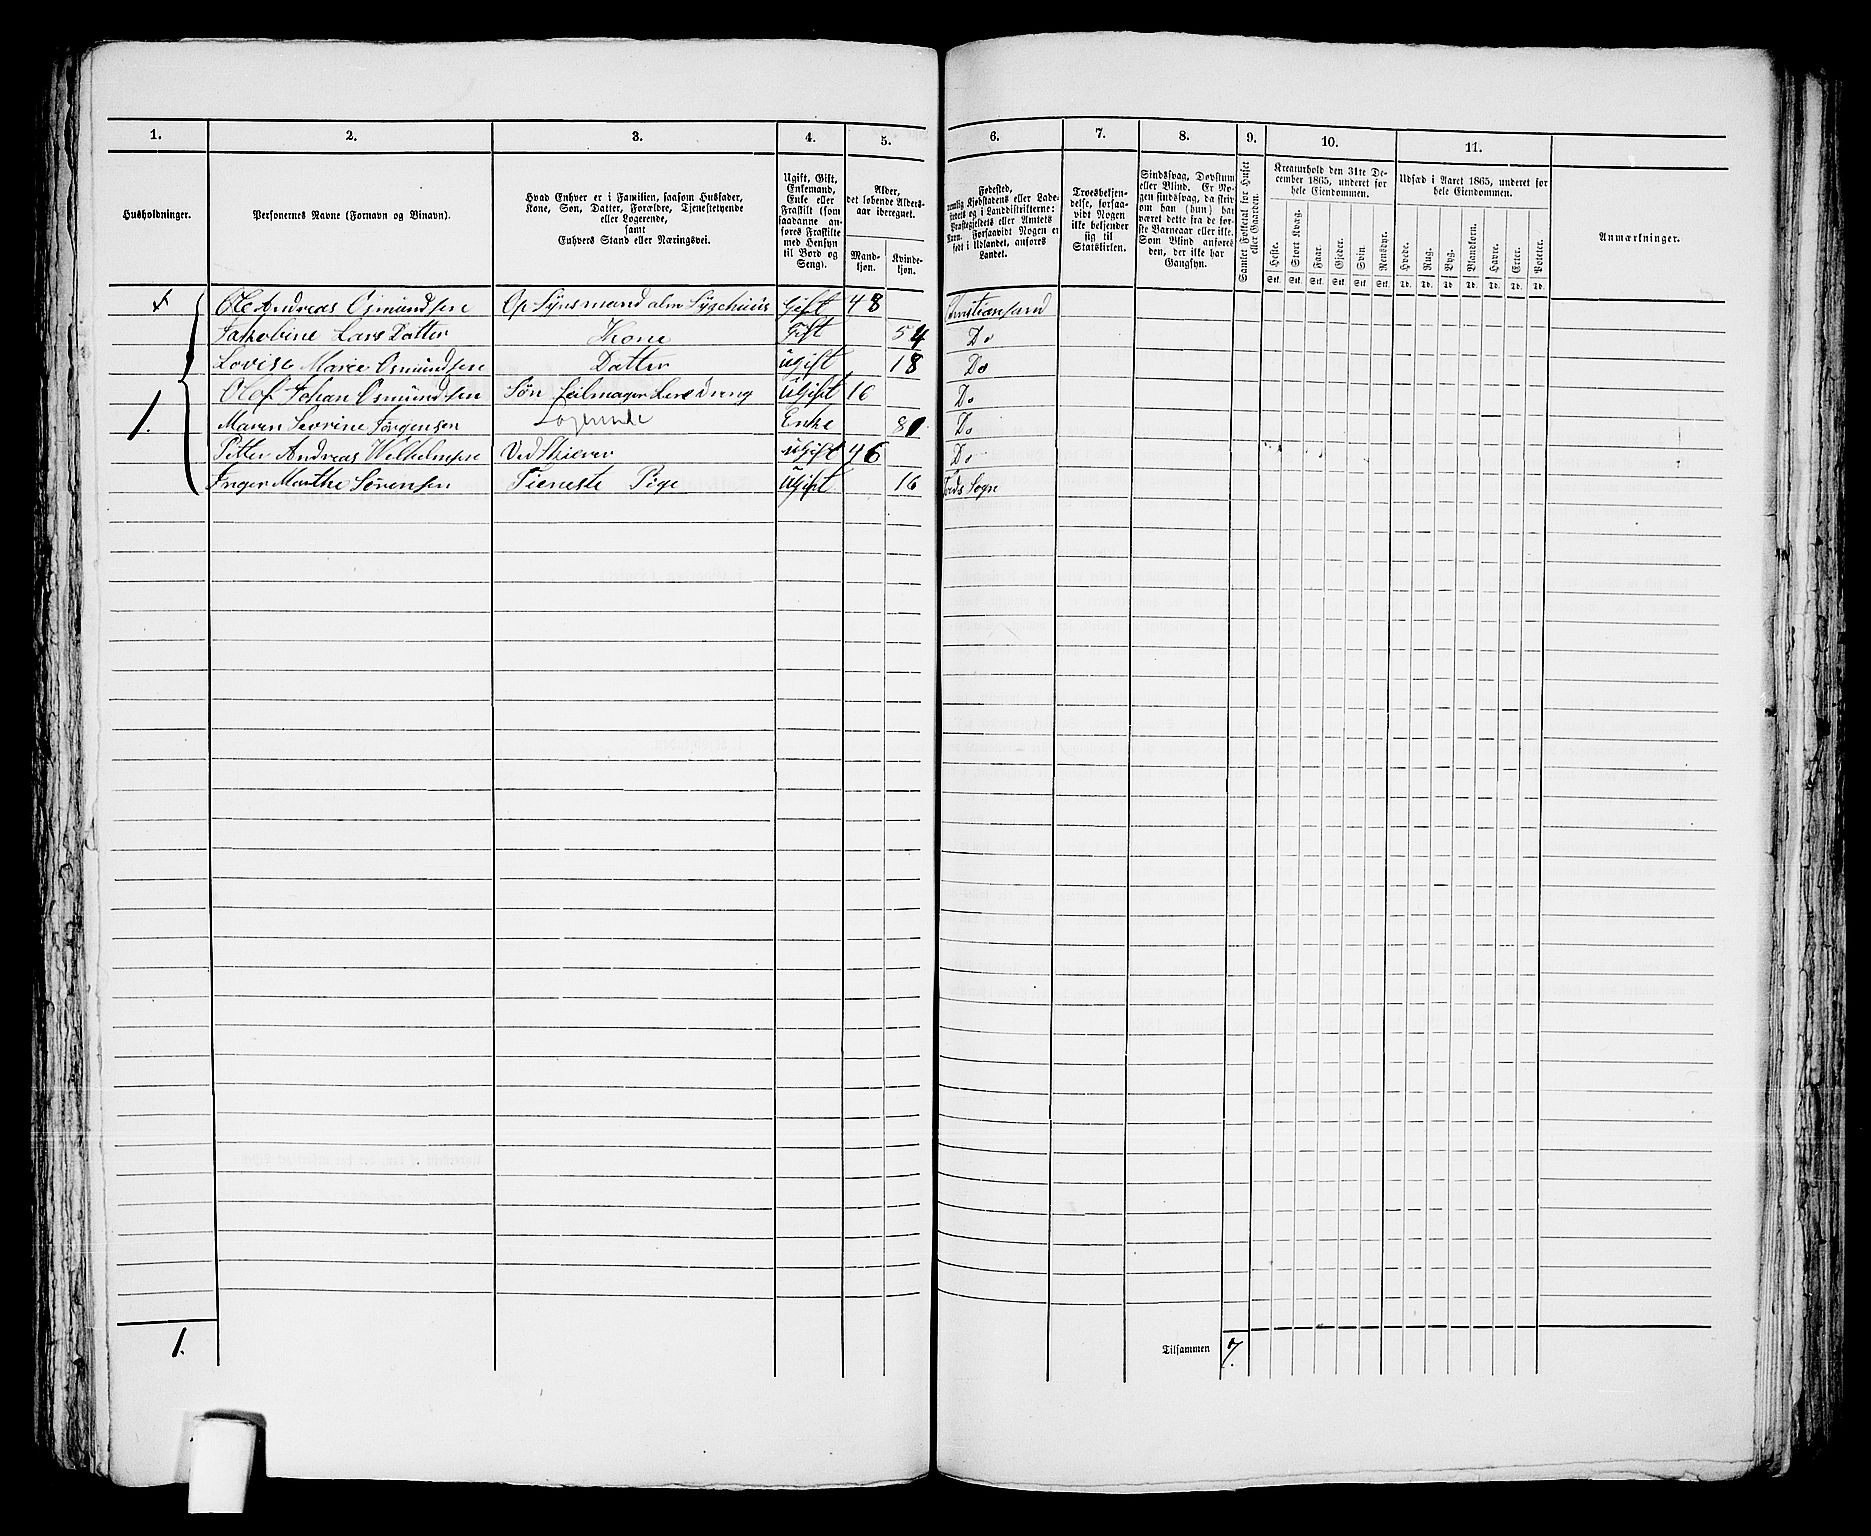 1. 2. 3. 4. 5. 6. 7. 8. 9. 10. 11.
Husholdninger.
Personernes Navne (Fornavn og Tilnavn).
Hvad Enhver er i Familien, saasom Husfader,
Kone, Søn, Datter, Forældre, Tjenestetyende
eller Logerende,
samt
Enhvers Stand eller Næringsvei.
Ugift, Gift,
Enkemand,
Enke eller
Fraskilt (som
saadanne an-
føres Fraskilte
med Hensyn
til Bord og
Seng).
Alder,
det løbende Alders-
aar iberegnet.
Mand-
kjøn.
Kvinde-
kjøn.
Fødested,
nemlig Kjøbstadens eller Lade-
stedets og i Landdistrikterne:
Præstegjeldets eller Amtets
Navn. Forsaavidt Nogen er
født i Udlandet, anføres
Landet.
Troesbekjen-
delse, forsaa-
vidt Nogen
ikke bekjender
sig til
Statskirken.
Sindssvag, Døvstum
eller Blind. Er No-
gen sindssvag, da skriv
om han (hun) har
været dette fra de før-
ste Barneaar eller ikke.
Som Blind anføres
den, der ikke har
Gangsyn.
Samlet Folketal for Huset
eller Gaarden.
Kreaturhold den 31te De-
cember 1865, underet for
hele Eiendommen.
Heste. Stort Kvæg. Faar. Gjeder. Svin. Rensdyr.
Stk. Stk. Stk. Stk. Stk. Stk.
Udsæd i Aaret 1865, underet for
hele Eiendommen.
Hvede. Rug. Byg. Blandkorn. Havre. Erter. Poteter.
Td. Td. Td. Td. Td. Td. Td.
Anmærkninger.
Ole Andreas Osmundsen Op Synsmand alm Sygehuus Gift 48 Christiansand
Jakobine Lars Datter Kone Gift 54 Do
Lovise Marie Osmundsen Datter ugift 18 Do
Olof Johan Osmundsen Søn Seilmager Lere Dreng ugift 16 Do
1. Maren Sevrine Jørgensen Logerende Enke 81 Do
Pitter Andreas Wilhelmsen Ved Skierer ugift 46 Do
Inger Marthe Sørensen Tieneste Pige ugift 16 Sogn
1. Tilsammen 7.